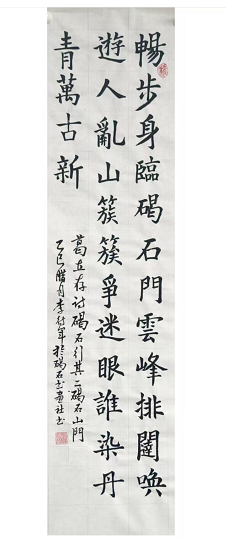 暢步身臨碣石門雲峰排闥喚
遊人亂山簇簇爭迷眼誰染丹
青萬古新
葛立存詩碣石引其二碣石山門
乙巳臘月李軍於碣石書畫社書